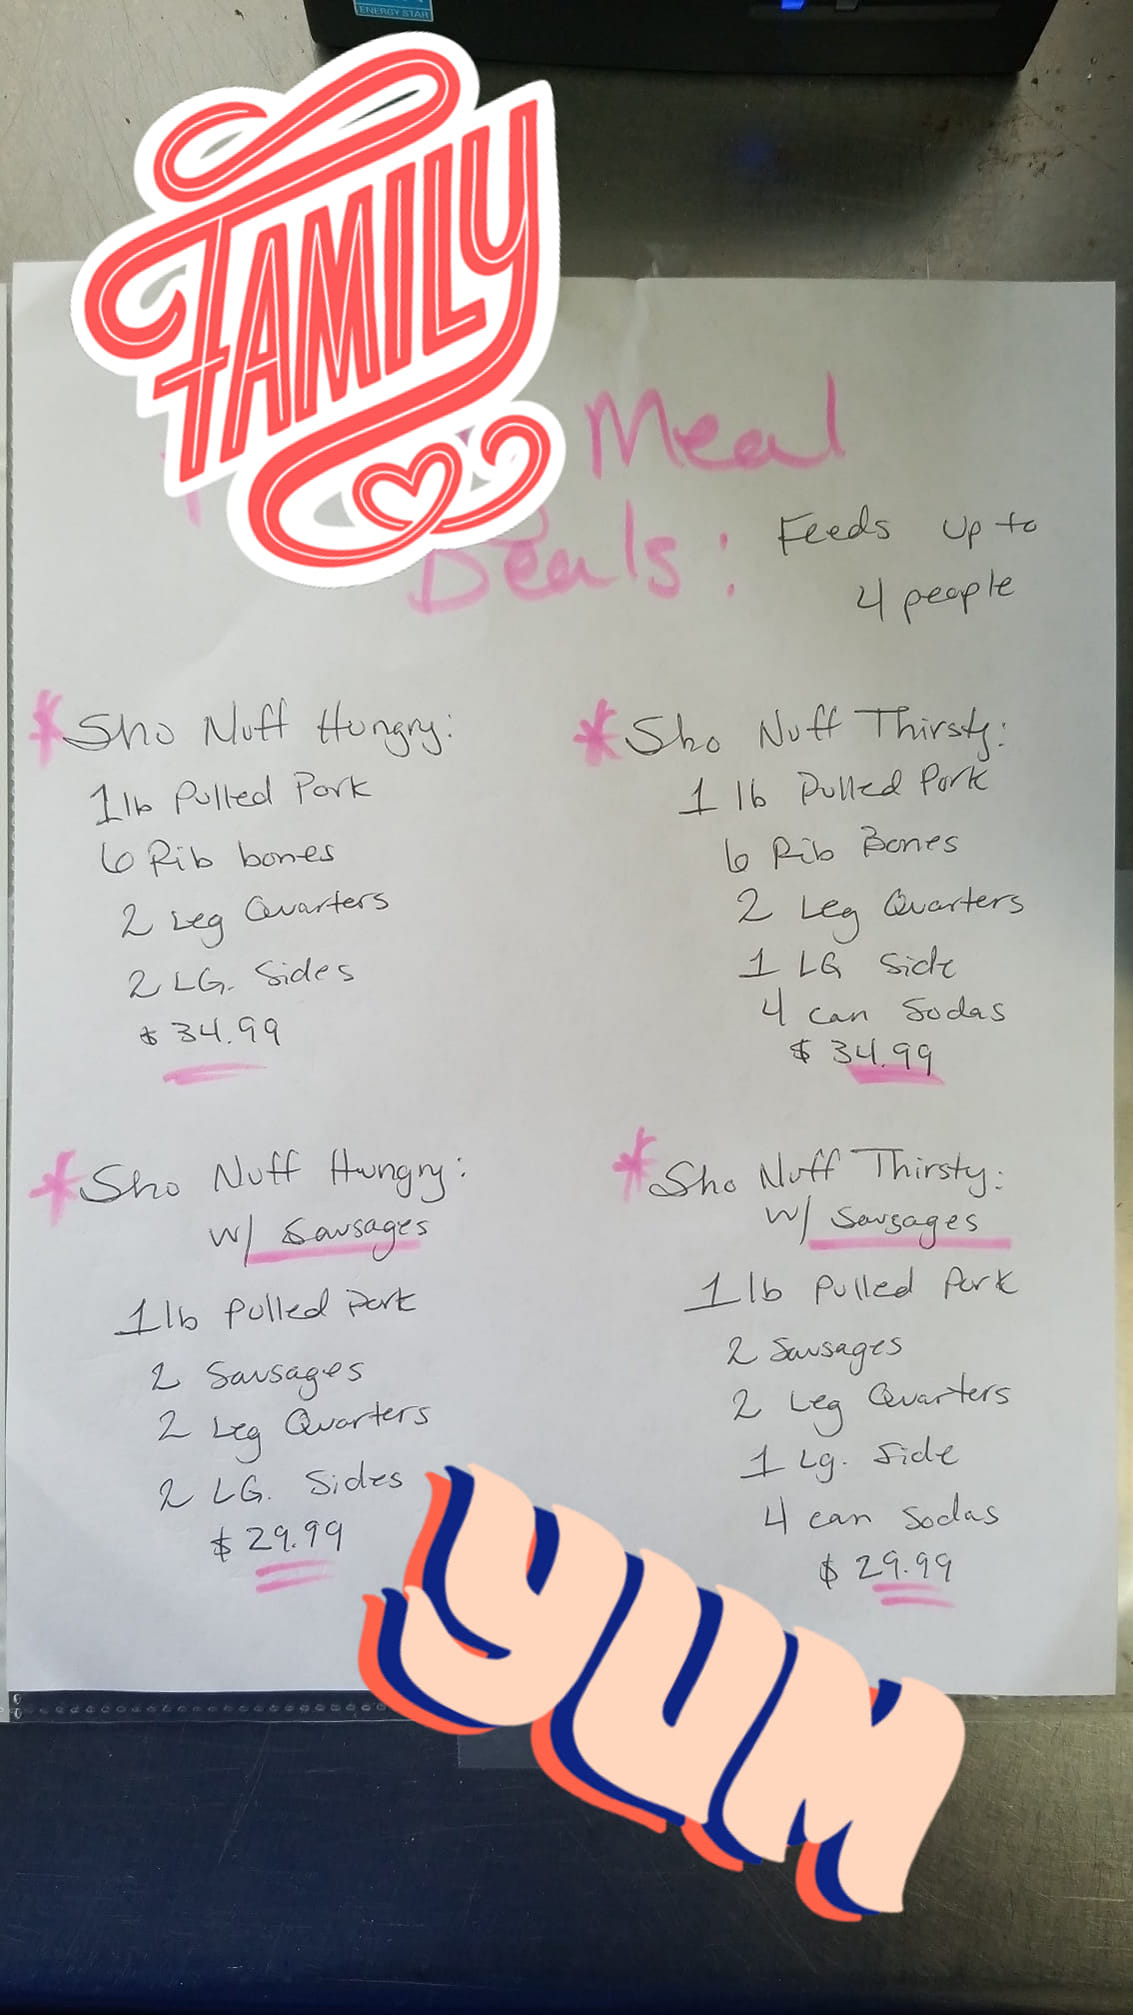 ENERGY STAR
FAMILY
Meal
Deals:
Feeds up to
4 people
* Sho Nuff Hungry:
1 lb Pulled Pork
6 Rib bones
2 Leg Quarters
2 LG. Sides
$ 34.99
* Sho Nuff Thirsty:
1 lb Pulled Pork
6 Rib Bones
2 Leg Quarters
1 LG Side
4 can Sodas
$ 34.99
* Sho Nuff Hungry:
w/ Sausages
1 lb Pulled Pork
2 Sausages
2 Leg Quarters
2 LG. Sides
$ 29.99
* Sho Nuff Thirsty:
w/ Sausages
1 lb Pulled Pork
2 Sausages
2 Leg Quarters
1 Lg. Side
4 can Sodas
$ 29.99
YUM